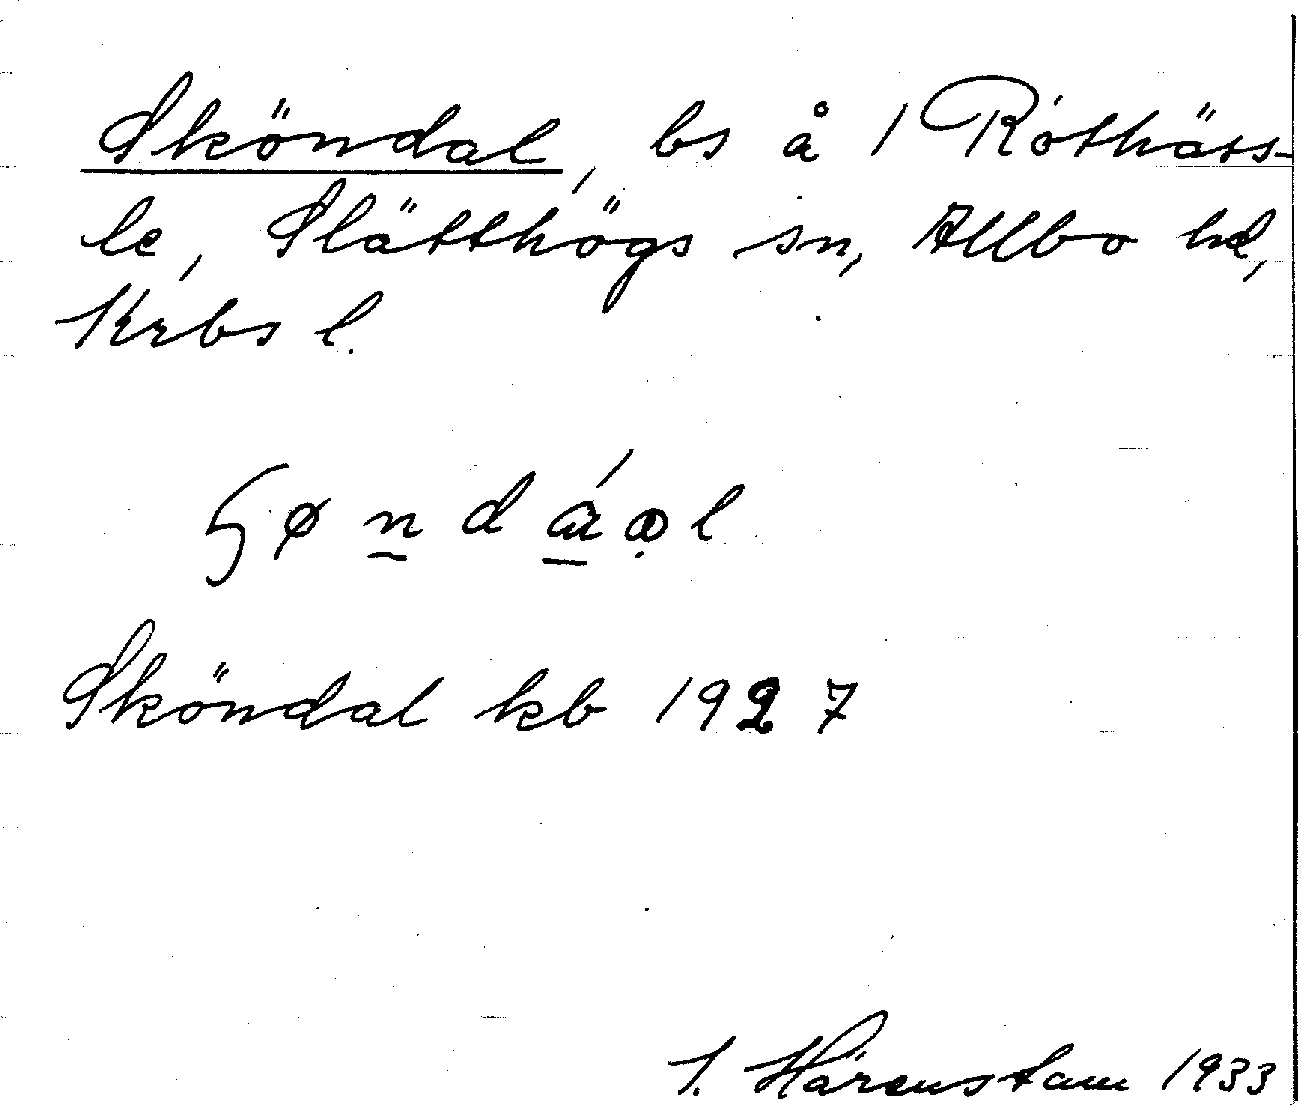 Sköndal, bs å 1 Röthäss-
le, Slätthögs sn, Allbo hd,
Krbs l.
ɧøndáɑ̣l
Sköndal kb 1927
I. Härenstam 1933